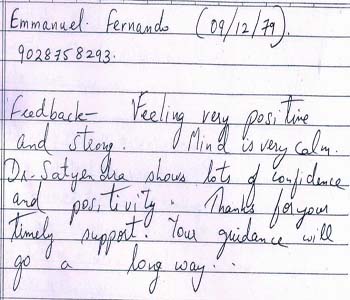 Emmanuel. Fernando (09/12/79).
9028758293.
Feedback- Feeling very positive
and strong. Mind is very calm.
Dr. Satyendra shows lots of confidence
and positivity. Thanks for your
timely support. Your guidance will
go a long way...